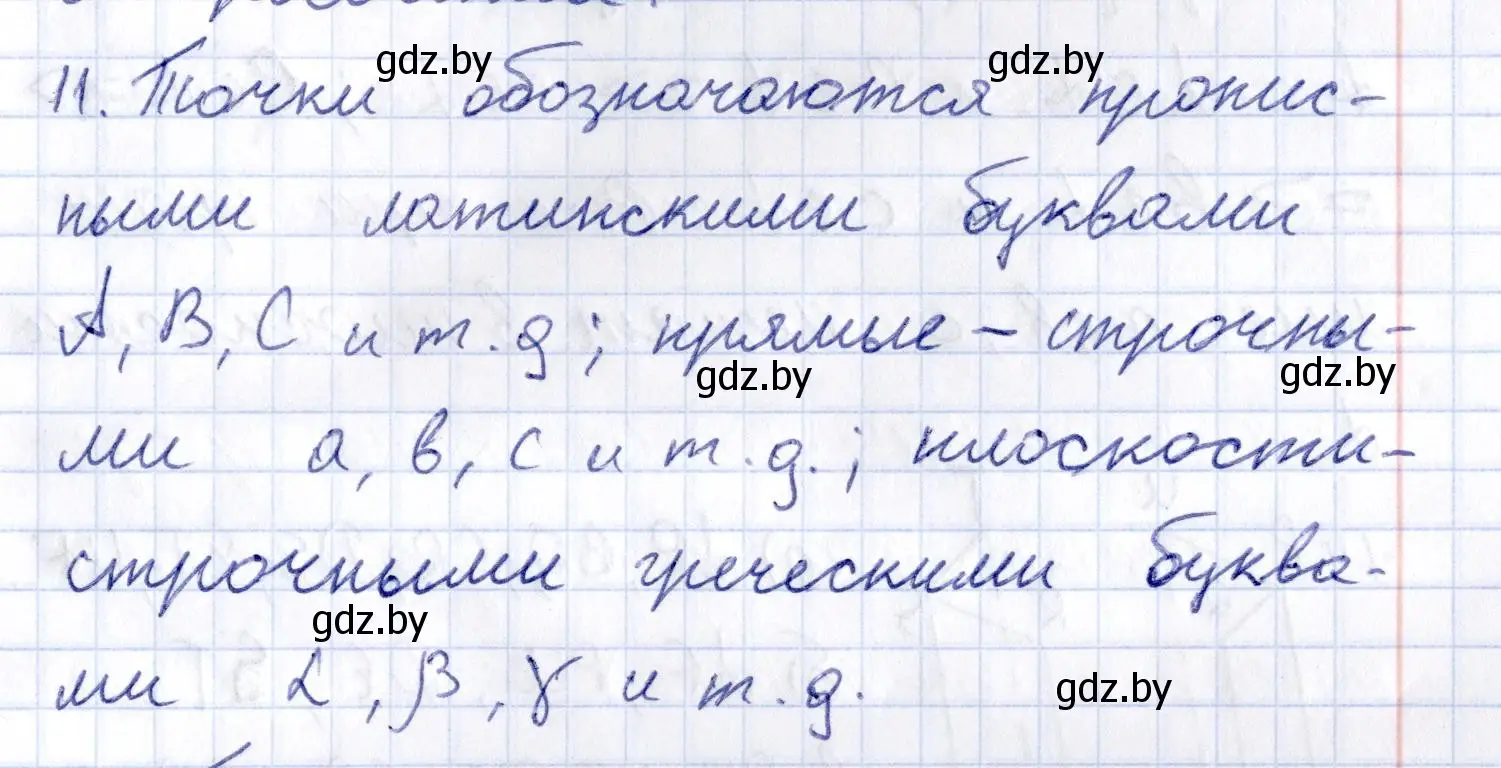 gdz.by gdz.by
11. Точки обозначаются пропис-
ными латинскими буквами
A, B, C и т. д; прямые – строчны-
gdz.by gdz.by
ми a, в, c и т. д.; плоскости -
строчными греческими буква-
gdz.by
ми α, β, γ и т. д.
gdz.by